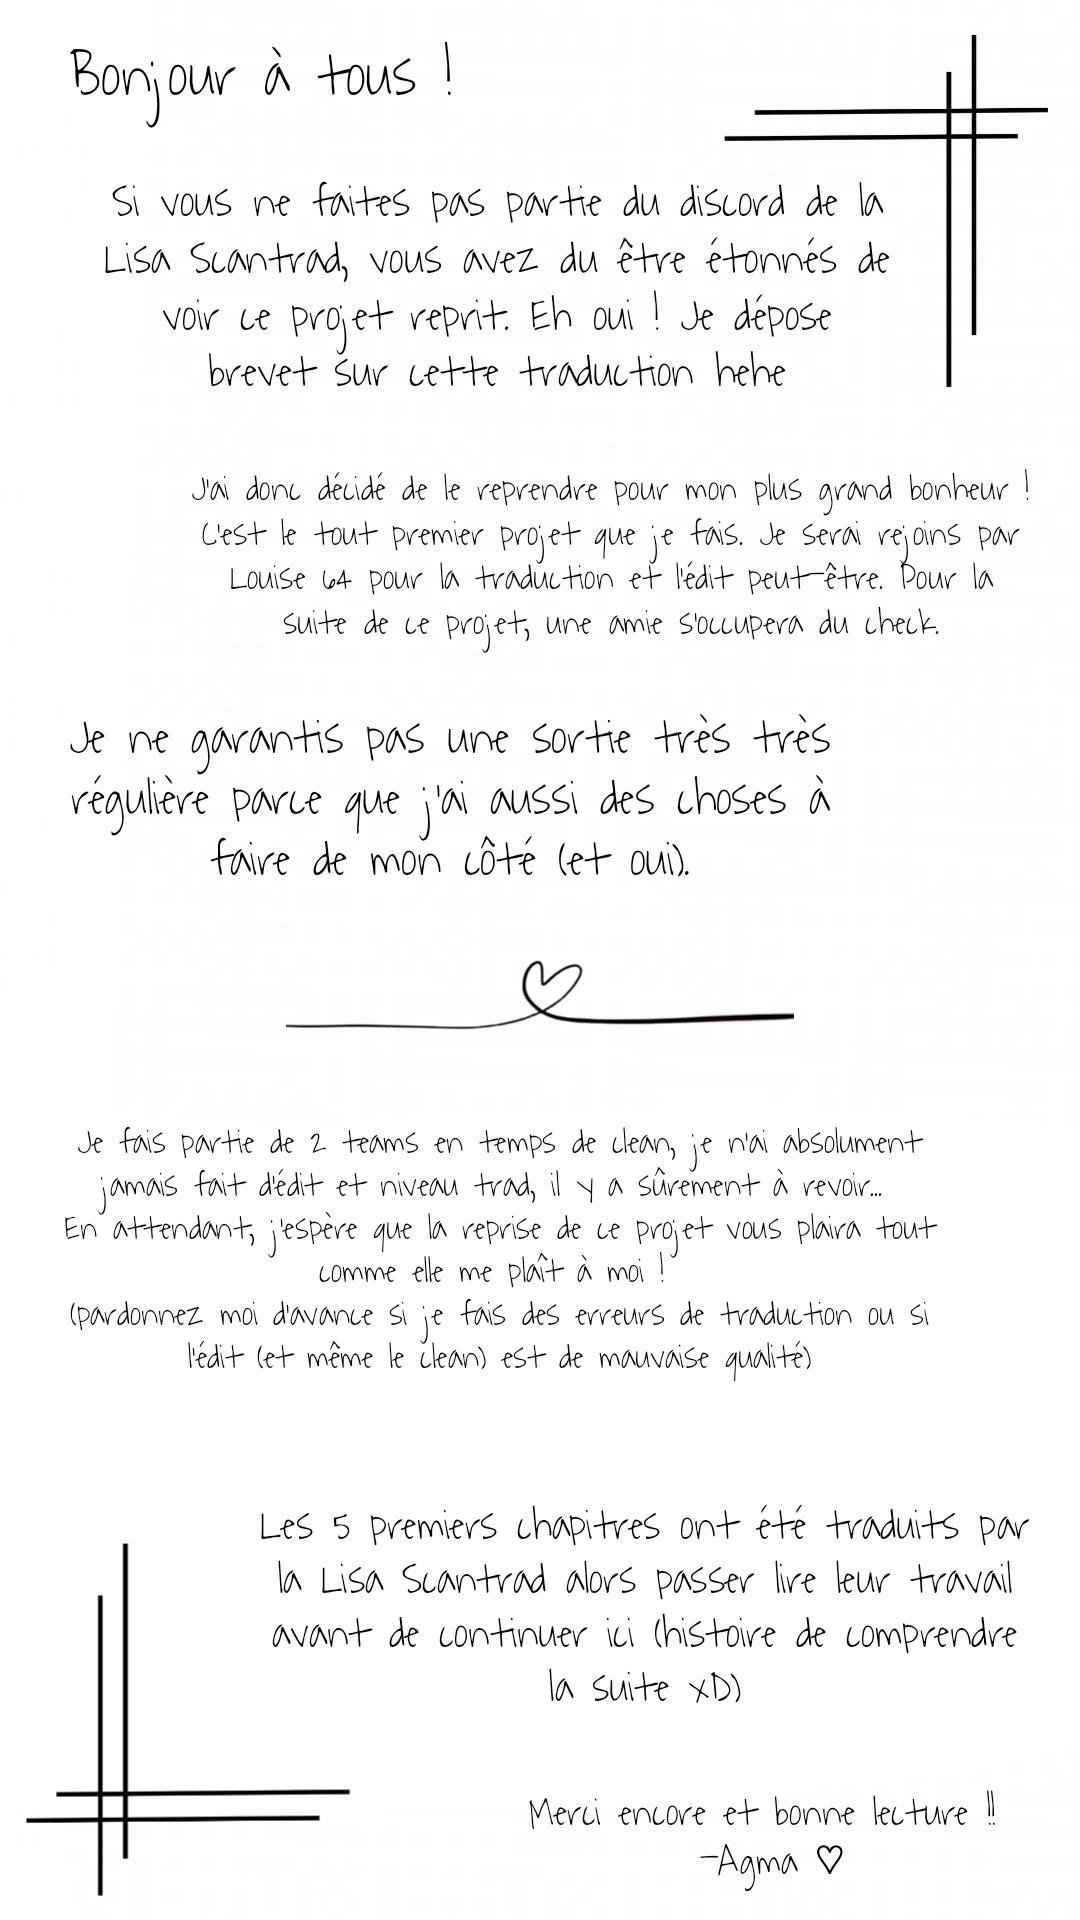 Bonjour à tous !
Si vous ne faites pas partie du discord de la
Lisa Scantrad, vous avez du être étonnés de
voir ce projet reprit. Eh oui ! Je dépose
brevet sur cette traduction hehe
J'ai donc décidé de le reprendre pour mon plus grand bonheur !
C'est le tout premier projet que je fais. Je serai rejoins par
Louise 64 pour la traduction et l'édit peut-être. Pour la
suite de ce projet, une amie s'occupera du check.
Je ne garantis pas une sortie très très
régulière parce que j'ai aussi des choses à
faire de mon côté (et oui).
Je fais partie de 2 teams en temps de clean, je n'ai absolument
jamais fait d'édit et niveau trad, il y a sûrement à revoir...
En attendant, j'espère que la reprise de ce projet vous plaira tout
comme elle me plaît à moi !
(pardonnez moi d'avance si je fais des erreurs de traduction ou si
l'édit (et même le clean) est de mauvaise qualité)
Les 5 premiers chapitres ont été traduits par
la Lisa Scantrad alors passer lire leur travail
avant de continuer ici (histoire de comprendre
la suite xD)
Merci encore et bonne lecture !!
-Agma ♡